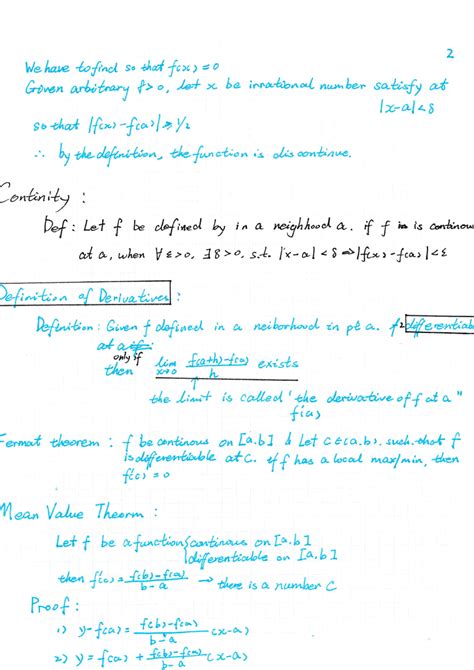 2
We have to find so that f(x) = 0
Given arbitrary δ>0, let x be irrational number satisfy at
|x-a|<δ
so that |f(x)-f(a)| 1/2
∴ by the definition, the function is discontinue.
Continity :
Def : Let f be defined by in a neighhood a. if f is continous
at a, when ∀ε>0, ∃δ>0, s.t. |x-a|<δ ⇒|f(x)-f(a)|<ε
Definition of Derivatives :
Definition : Given f defined in a neiborhood in pt a. f differentiable
at a
only if
then lim x→0 f(a+h)-f(a) / h exists
the limit is called "the derivative of f at a"
f'(a)
Fermat theorem : f be continous on [a.b] & Let c∈(a.b). such that f
is differentiable at c. if f has a local max/min, then
f'(c) = 0
Mean Value Theorm :
Let f be a function { continous on [a.b]
differentiable on [a.b]
then f'(c) = f(b)-f(a) / b-a → there is a number c
Proof :
1) y-f(a) = f(b)-f(a) / b-a (x-a)
2) y = f(a) + f(b)-f(a) / b-a (x-a)